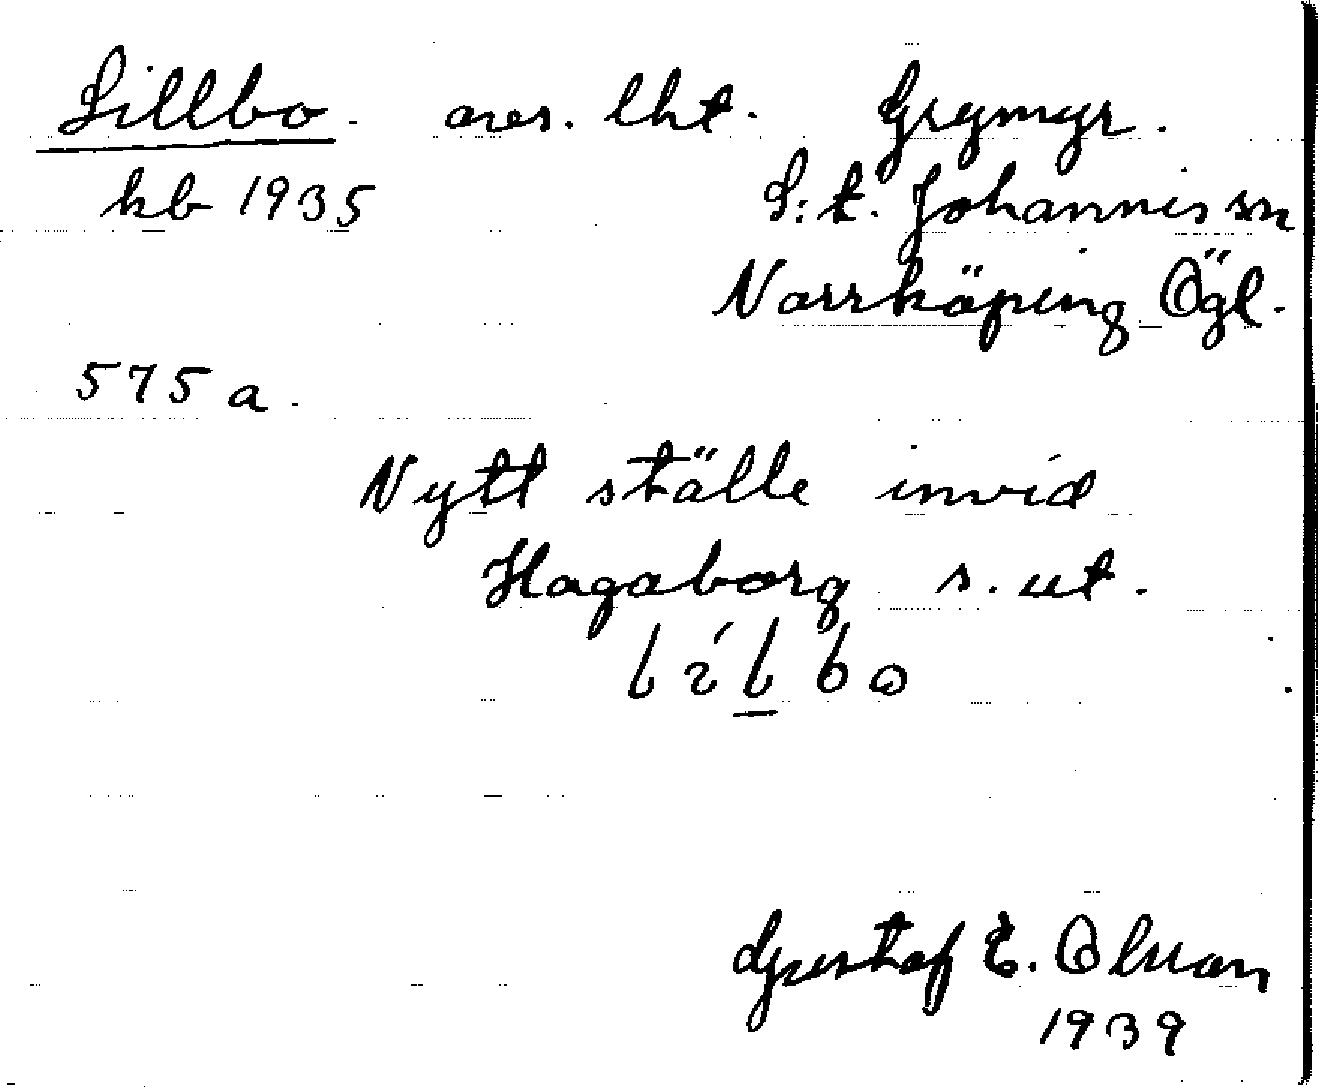 Lillbo. avs. lht. Grymyr.
kb 1935 S:t. Johannis sn
Norrköping Ögl.
575 a.
Nytt ställe invid
Hagaborg s. ut.
Gustaf E. Olsson
1939